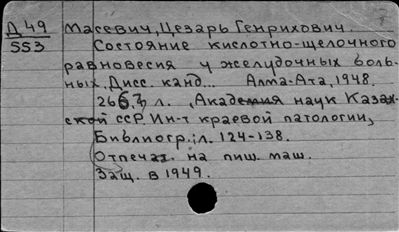 Д 49 Масевич, Цезарь Генрихович.
553 Состояние кислотно-щелочного
равновесия у желудочных боль-
ных. Дисс. канд... Алма-Ата, 1948.
266, л. (Академия наук Казах-
ской ССР. Ин-т краевой патологии)
Библиогр.: л. 124-138.
Отпечат. на пиш. маш.
Защ. в 1949.